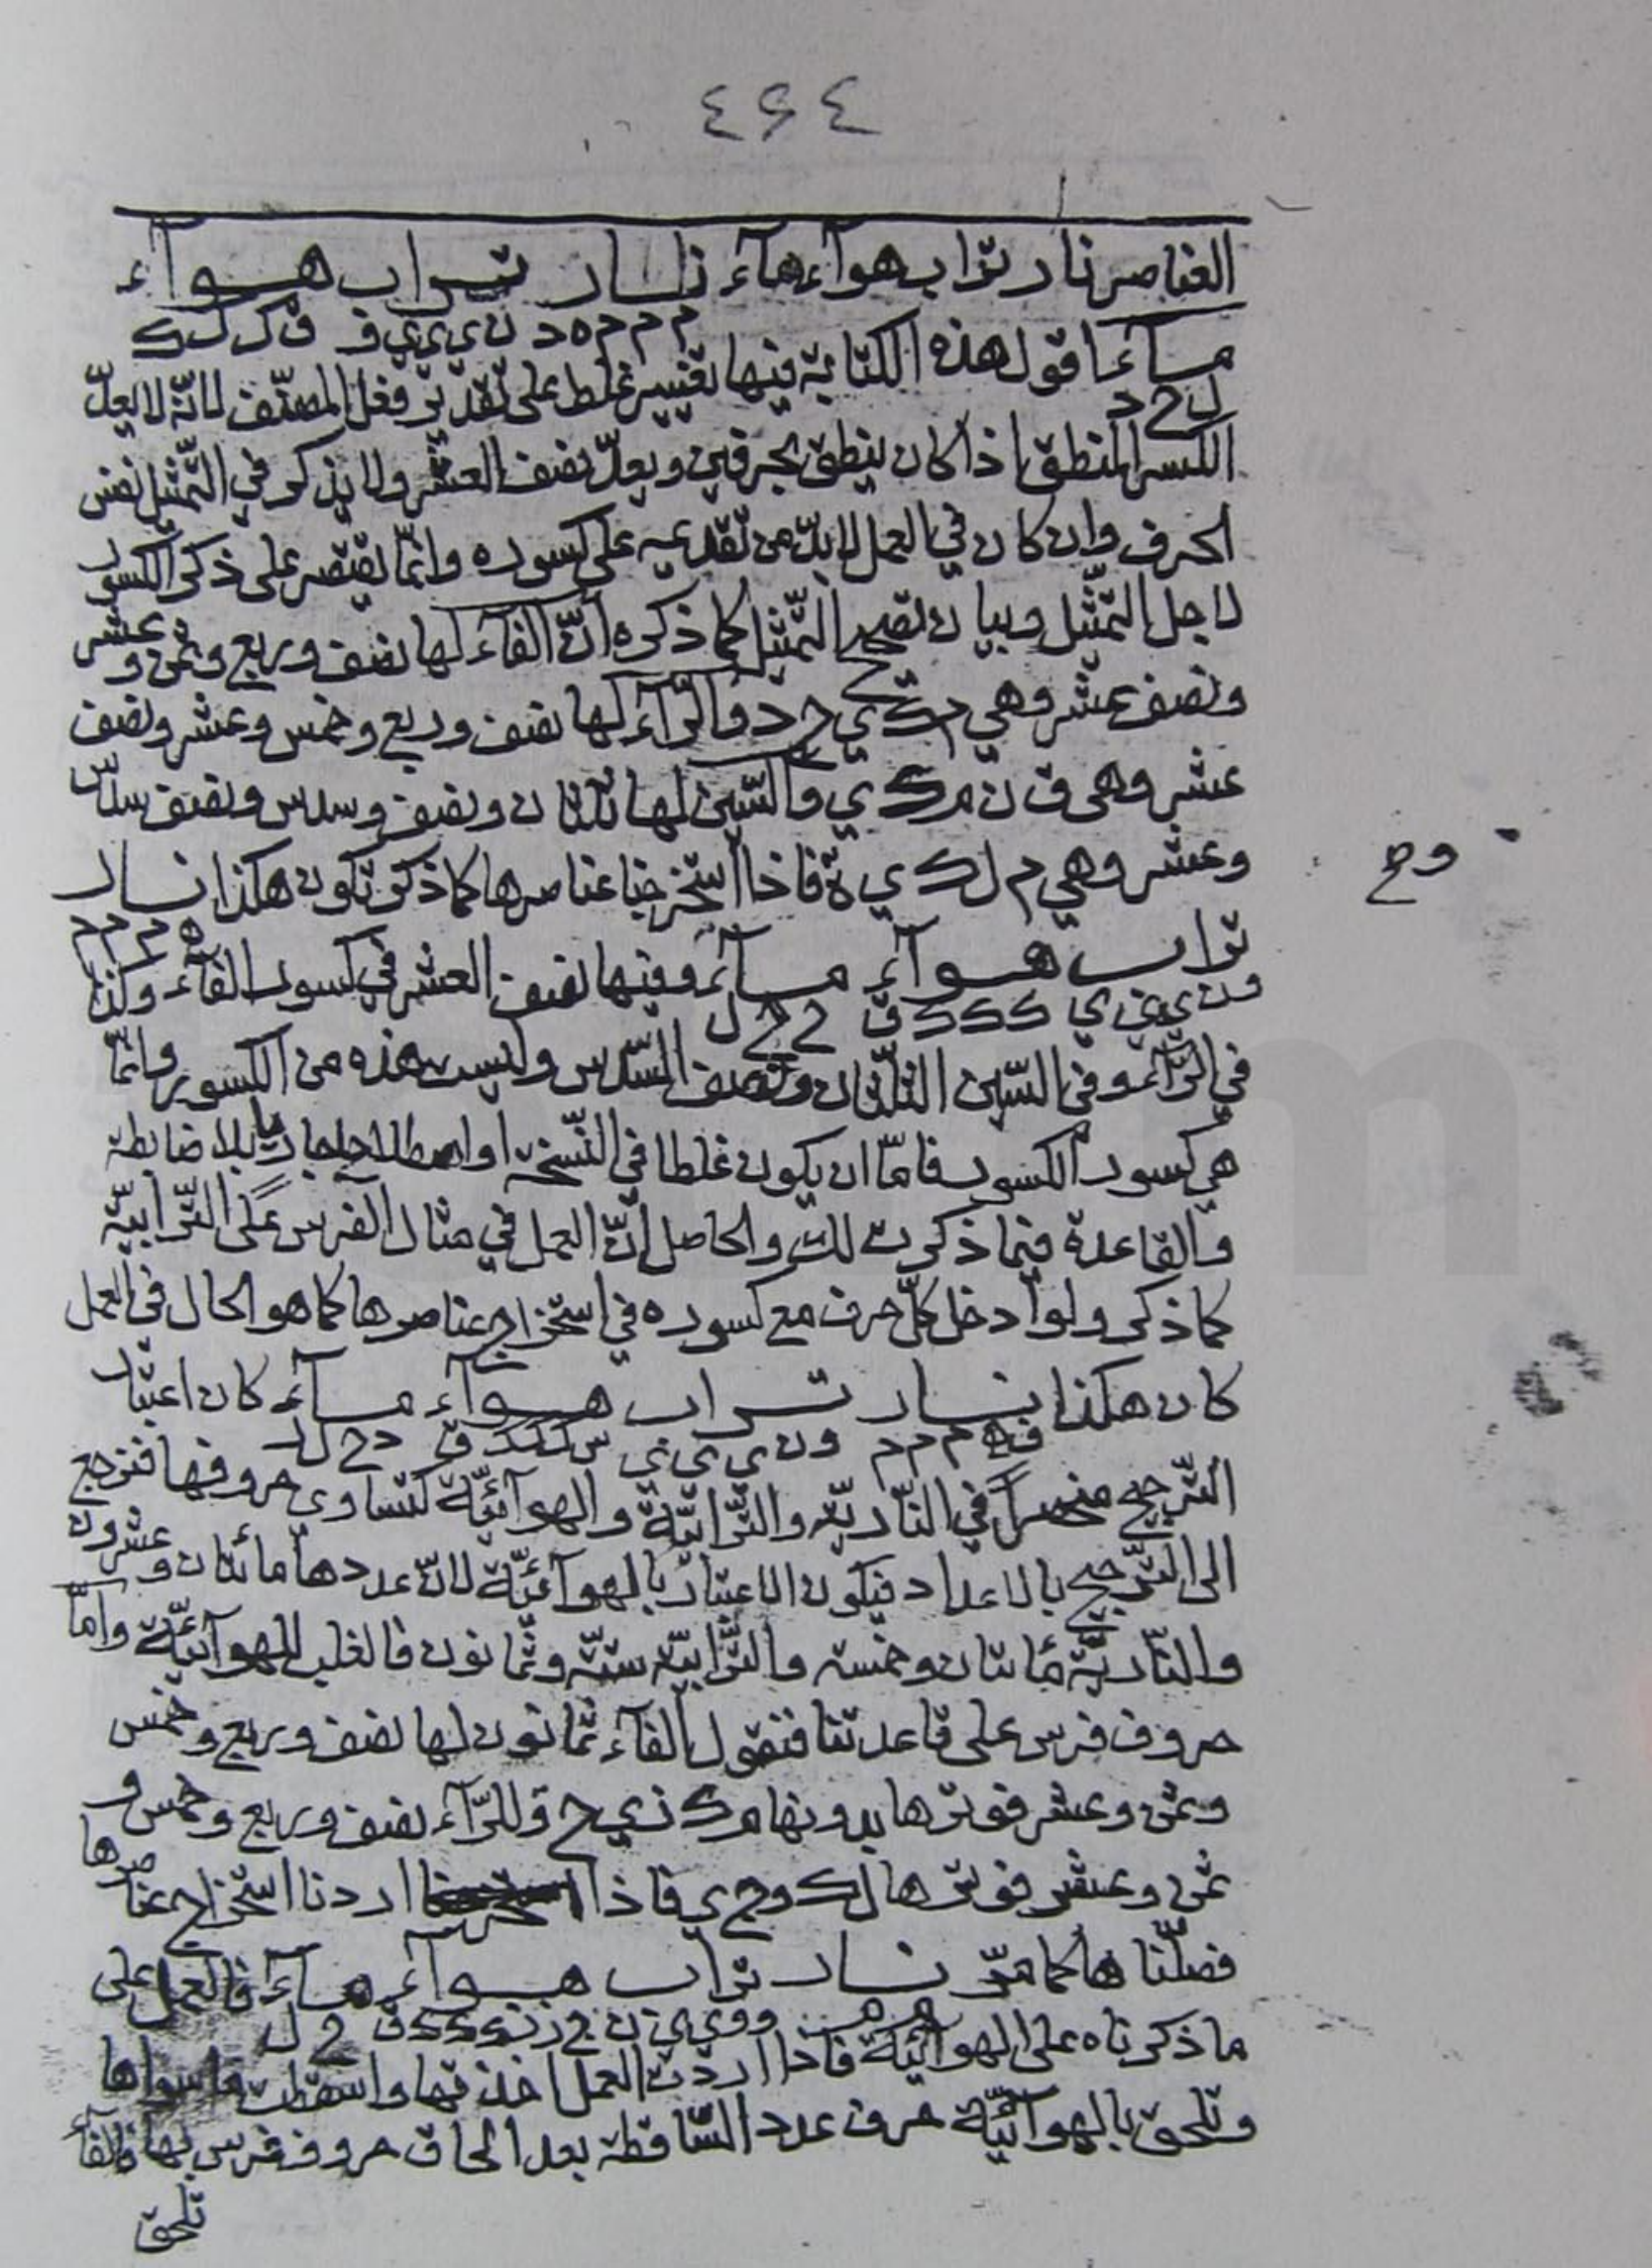 ٤٦٤
العناصر نار تراب هوآء مآء نار تراب هوآء
م م م ه د ن ي ي ي و ق ك ك ك
مآء اقول هذه الكتابة فيها تغيير غلط على تقدير فعل المصنّف لانّه لا يعدّ
ل ح د
الكسر المنطق اذا كان ينطق بحرفين ويعدّ نصف العشر ولا يذكر في التّمثيل نفس
الحرف وان كان في العمل لابدّ من تقديمه على كسوره وانّما يقتصر على ذكر الكسور
لاجل التّمثيل وبيان تصحيح التّمثيل كما ذكره انّ الفآء لها نصف وربع وثمن وعشر
ونصف عشر وهي م ك ي ح د والرّآء لها نصف وربع وخمس وعشر ونصف
عشر وهي ق ن م ك ي والسّين لها ثلثان ونصف وسدس ونصف سدس
وعشر وهي م ل ك ي ة فاذا استخرجنا عناصرها كما ذكر تكون هكذا نار
وح
ه م م م
تراب هوآء مآء وفيها نصف العشر في كسور الفآء وكذا
ون ي ي ي ك ك ك ق ح ح ل
في الرّآء وفي السّين الثلثان ونصف السّدس وليست هذه من الكسور وانّما
هي كسور الكسور فامّا ان يكون غلطا في النّسخة او اصطلاحا جاريا بلا ضابطة
والقاعدة فيما ذكرت لك والحاصل انّ العمل في مثال الفرس على التّرابيّة
كما ذكر ولو ادخل كلّ حرف مع كسوره في استخراج عناصرها كما هو الحال في العمل
كان هكذا نار تراب هوآء مآء كان اعتبار
ف ه م م م ون ي ي ي س ك ك ك ق د ح ل ر
التّرجيح منحصراً في النّاريّة والتّرابيّة والهوآئيّة لتساوي حروفها فنرجع
الى التّرجيح بالاعداد فيكون الاعتبار بالهوآئيّة لانّ عددها مائتان وعشرون
والنّاريّة مائتان وخمسة والتّرابيّة ستّة وثمانون فالغلب للهوآئيّة وامّا
حروف فرس على قاعدتنا فنقول الفآء ثمانون لها نصف وربع وخمس
وثمن وعشر فوترها بدونها م ك ي ح وللرّآء نصف وربع وخمس و
ثمن وعشر فوترها ل ك وح ي فاذا اردنا استخراج عناصرها
فصلّناها كما مرّ نار تراب هوآء مآء فالعمل على
ما ذكرناه على الهوآئيّة فاذا اردت العمل اخذتها واسقطت ما سواها
وتلحق بالهوآئيّة حرف عدد السّاقطة بعد الحاق حروف فرس بها فالفآء
تلحق